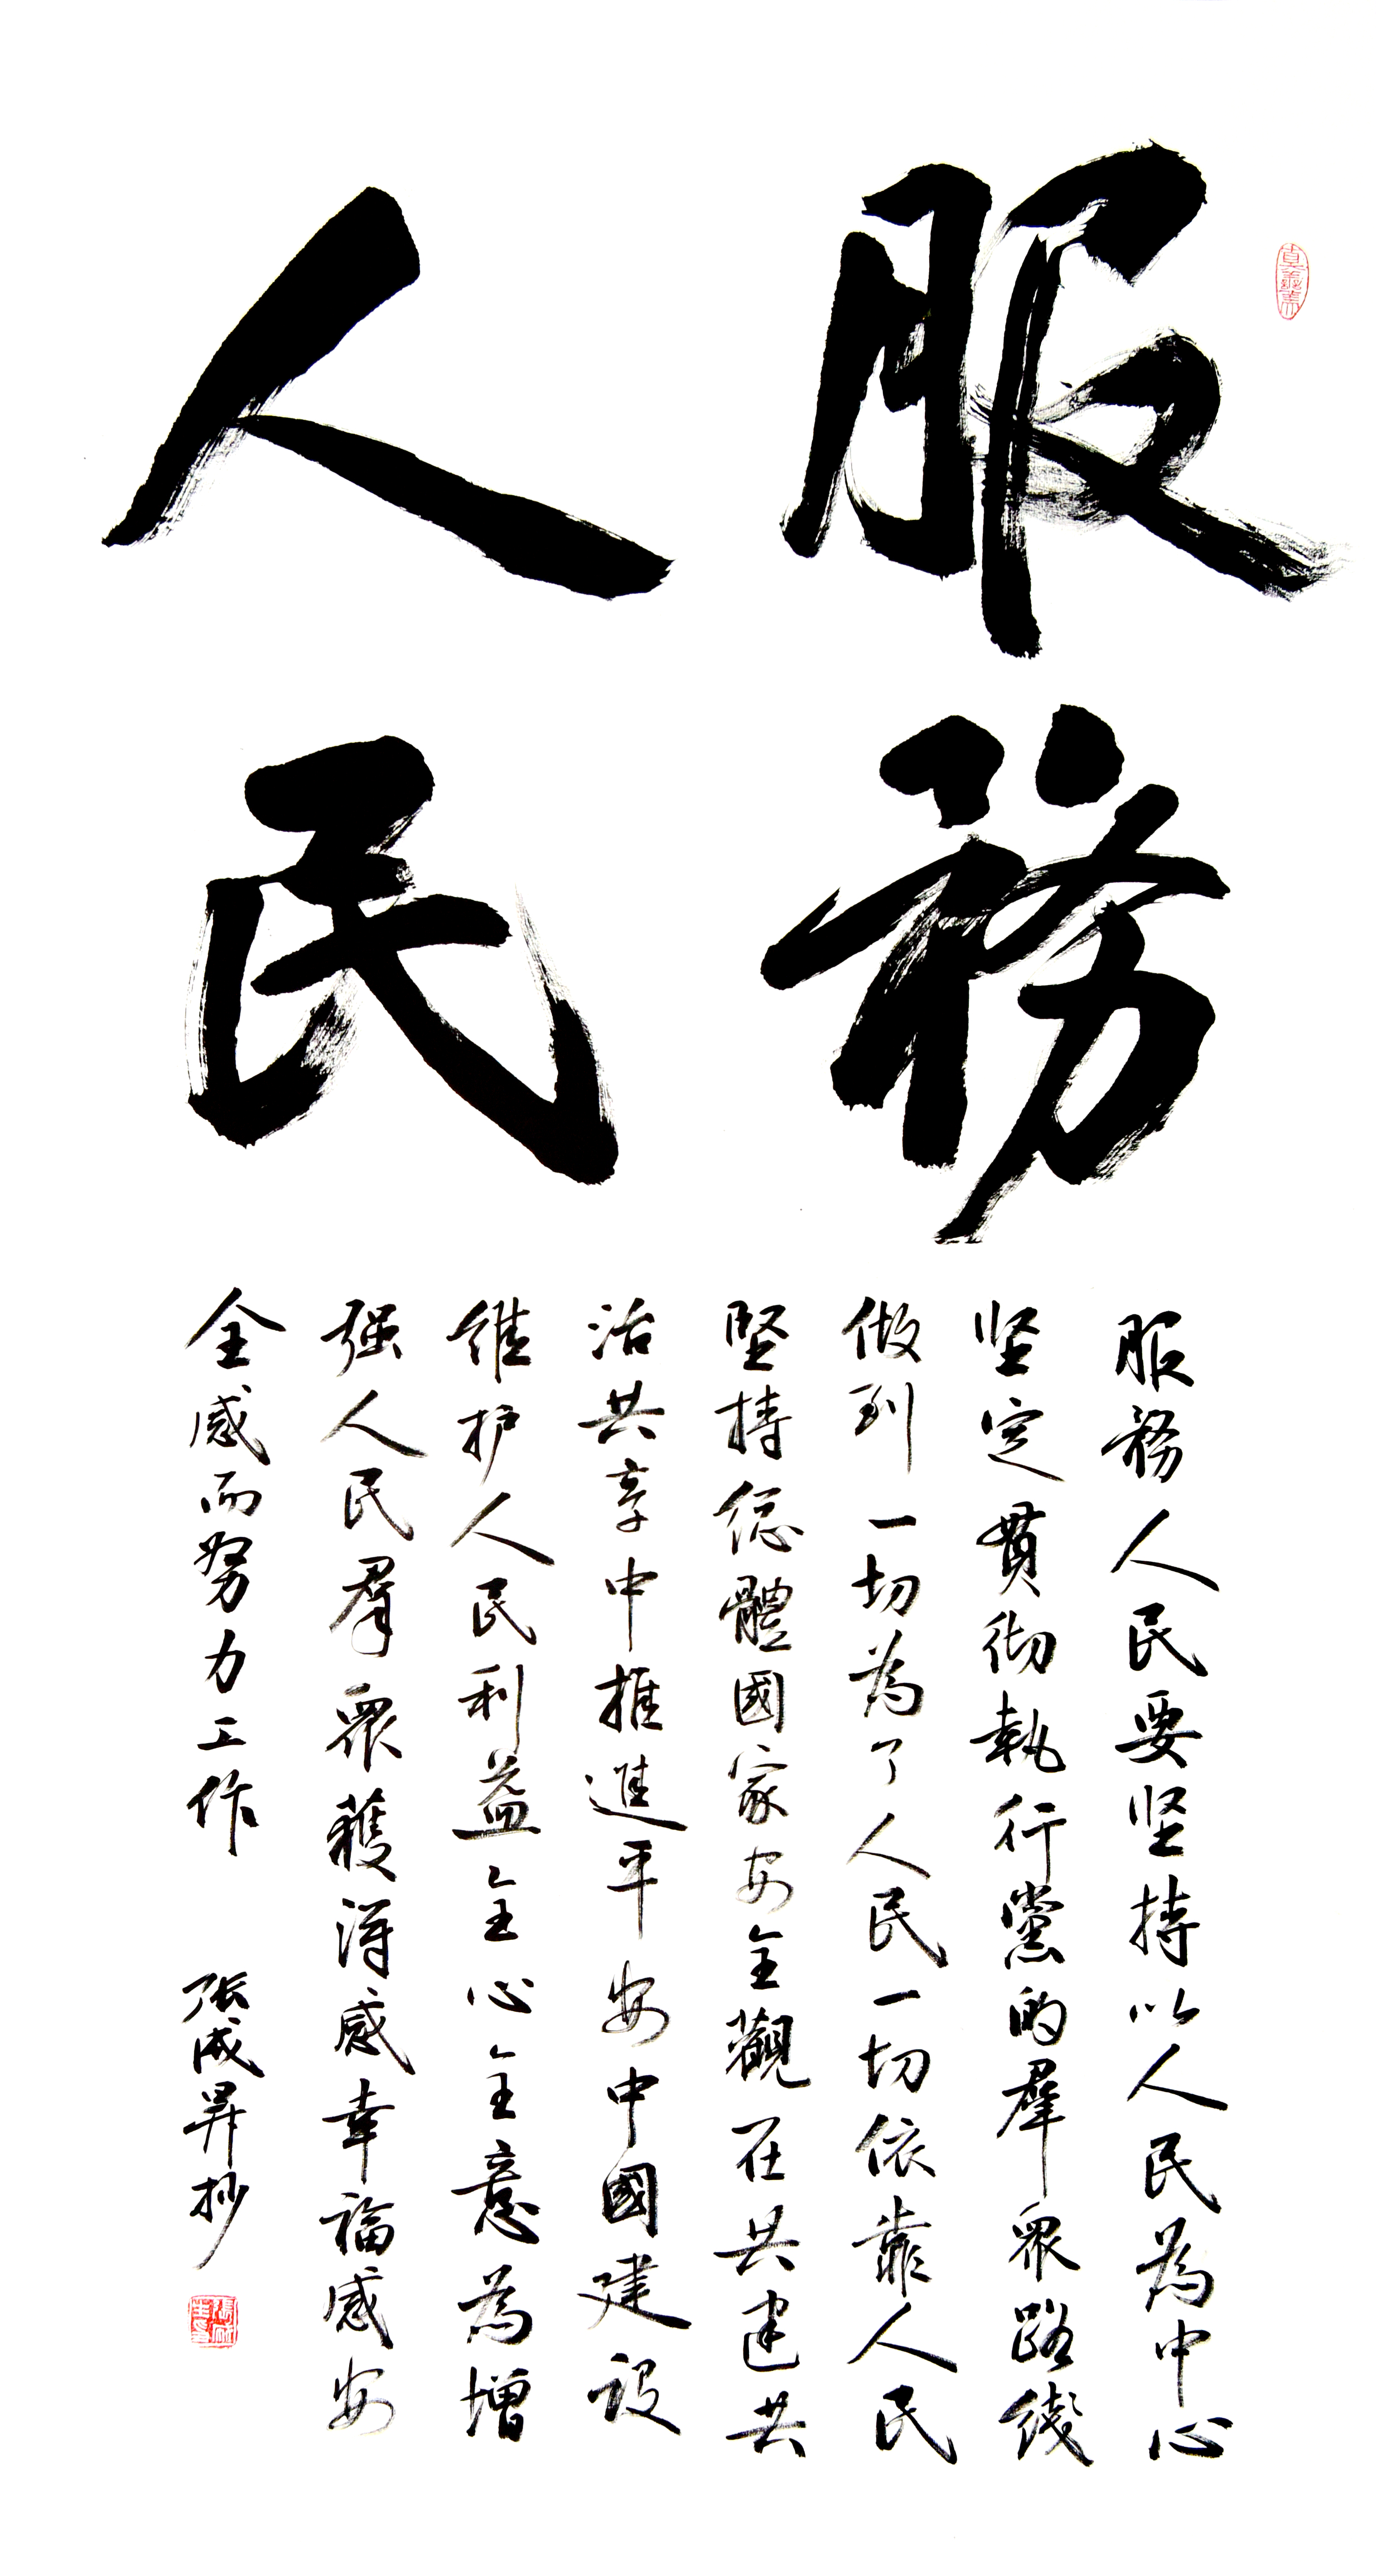 服務
人民
服務人民要坚持以人民為中心
坚定貫彻執行黨的羣眾路綫
做到一切為了人民一切依靠人民
堅持總體國家安全觀在共建共
活共享中推進平安中國建設
维护人民利益全心全意為增
强人民羣眾獲得感幸福感安
全感而努力工作
張成昇抄